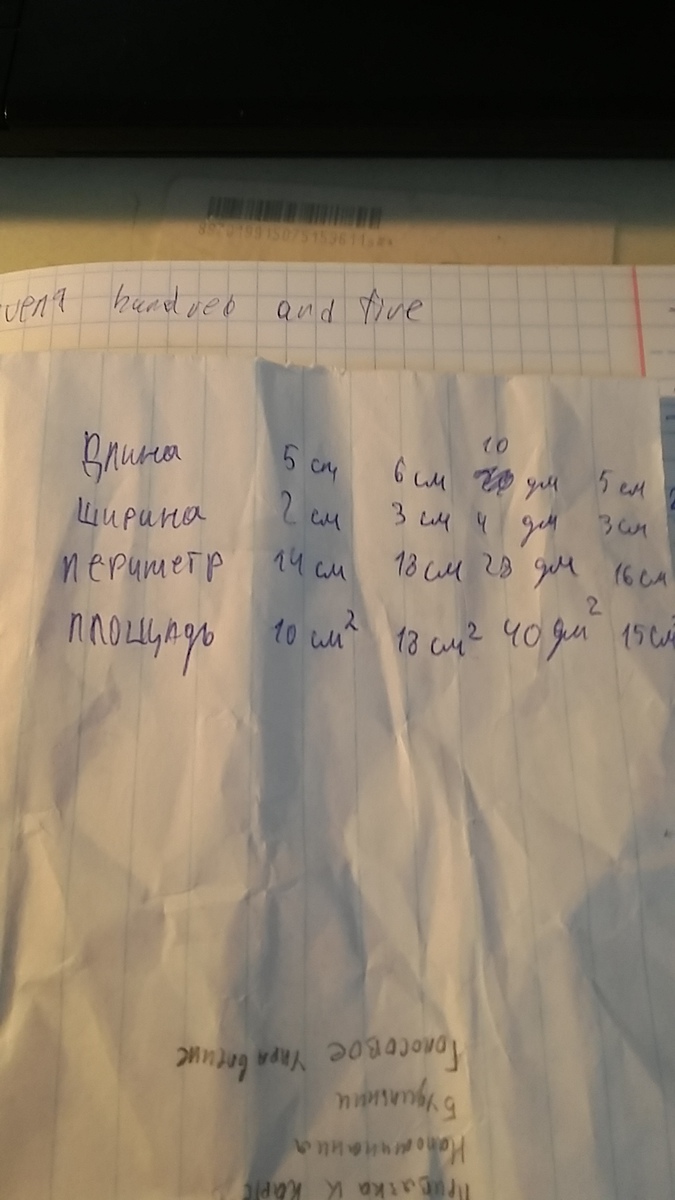 hundred and five
10
Длина 5 см 6 см дм 5 см
Ширина 2 см 3 см 4 дм 3 см
Периметр 14 см 18 см 28 дм 16 см
Площадь 10 см² 18 см² 40 дм² 15 см
Голосовое управление
Будильник
Напоминания
Привязка к карте